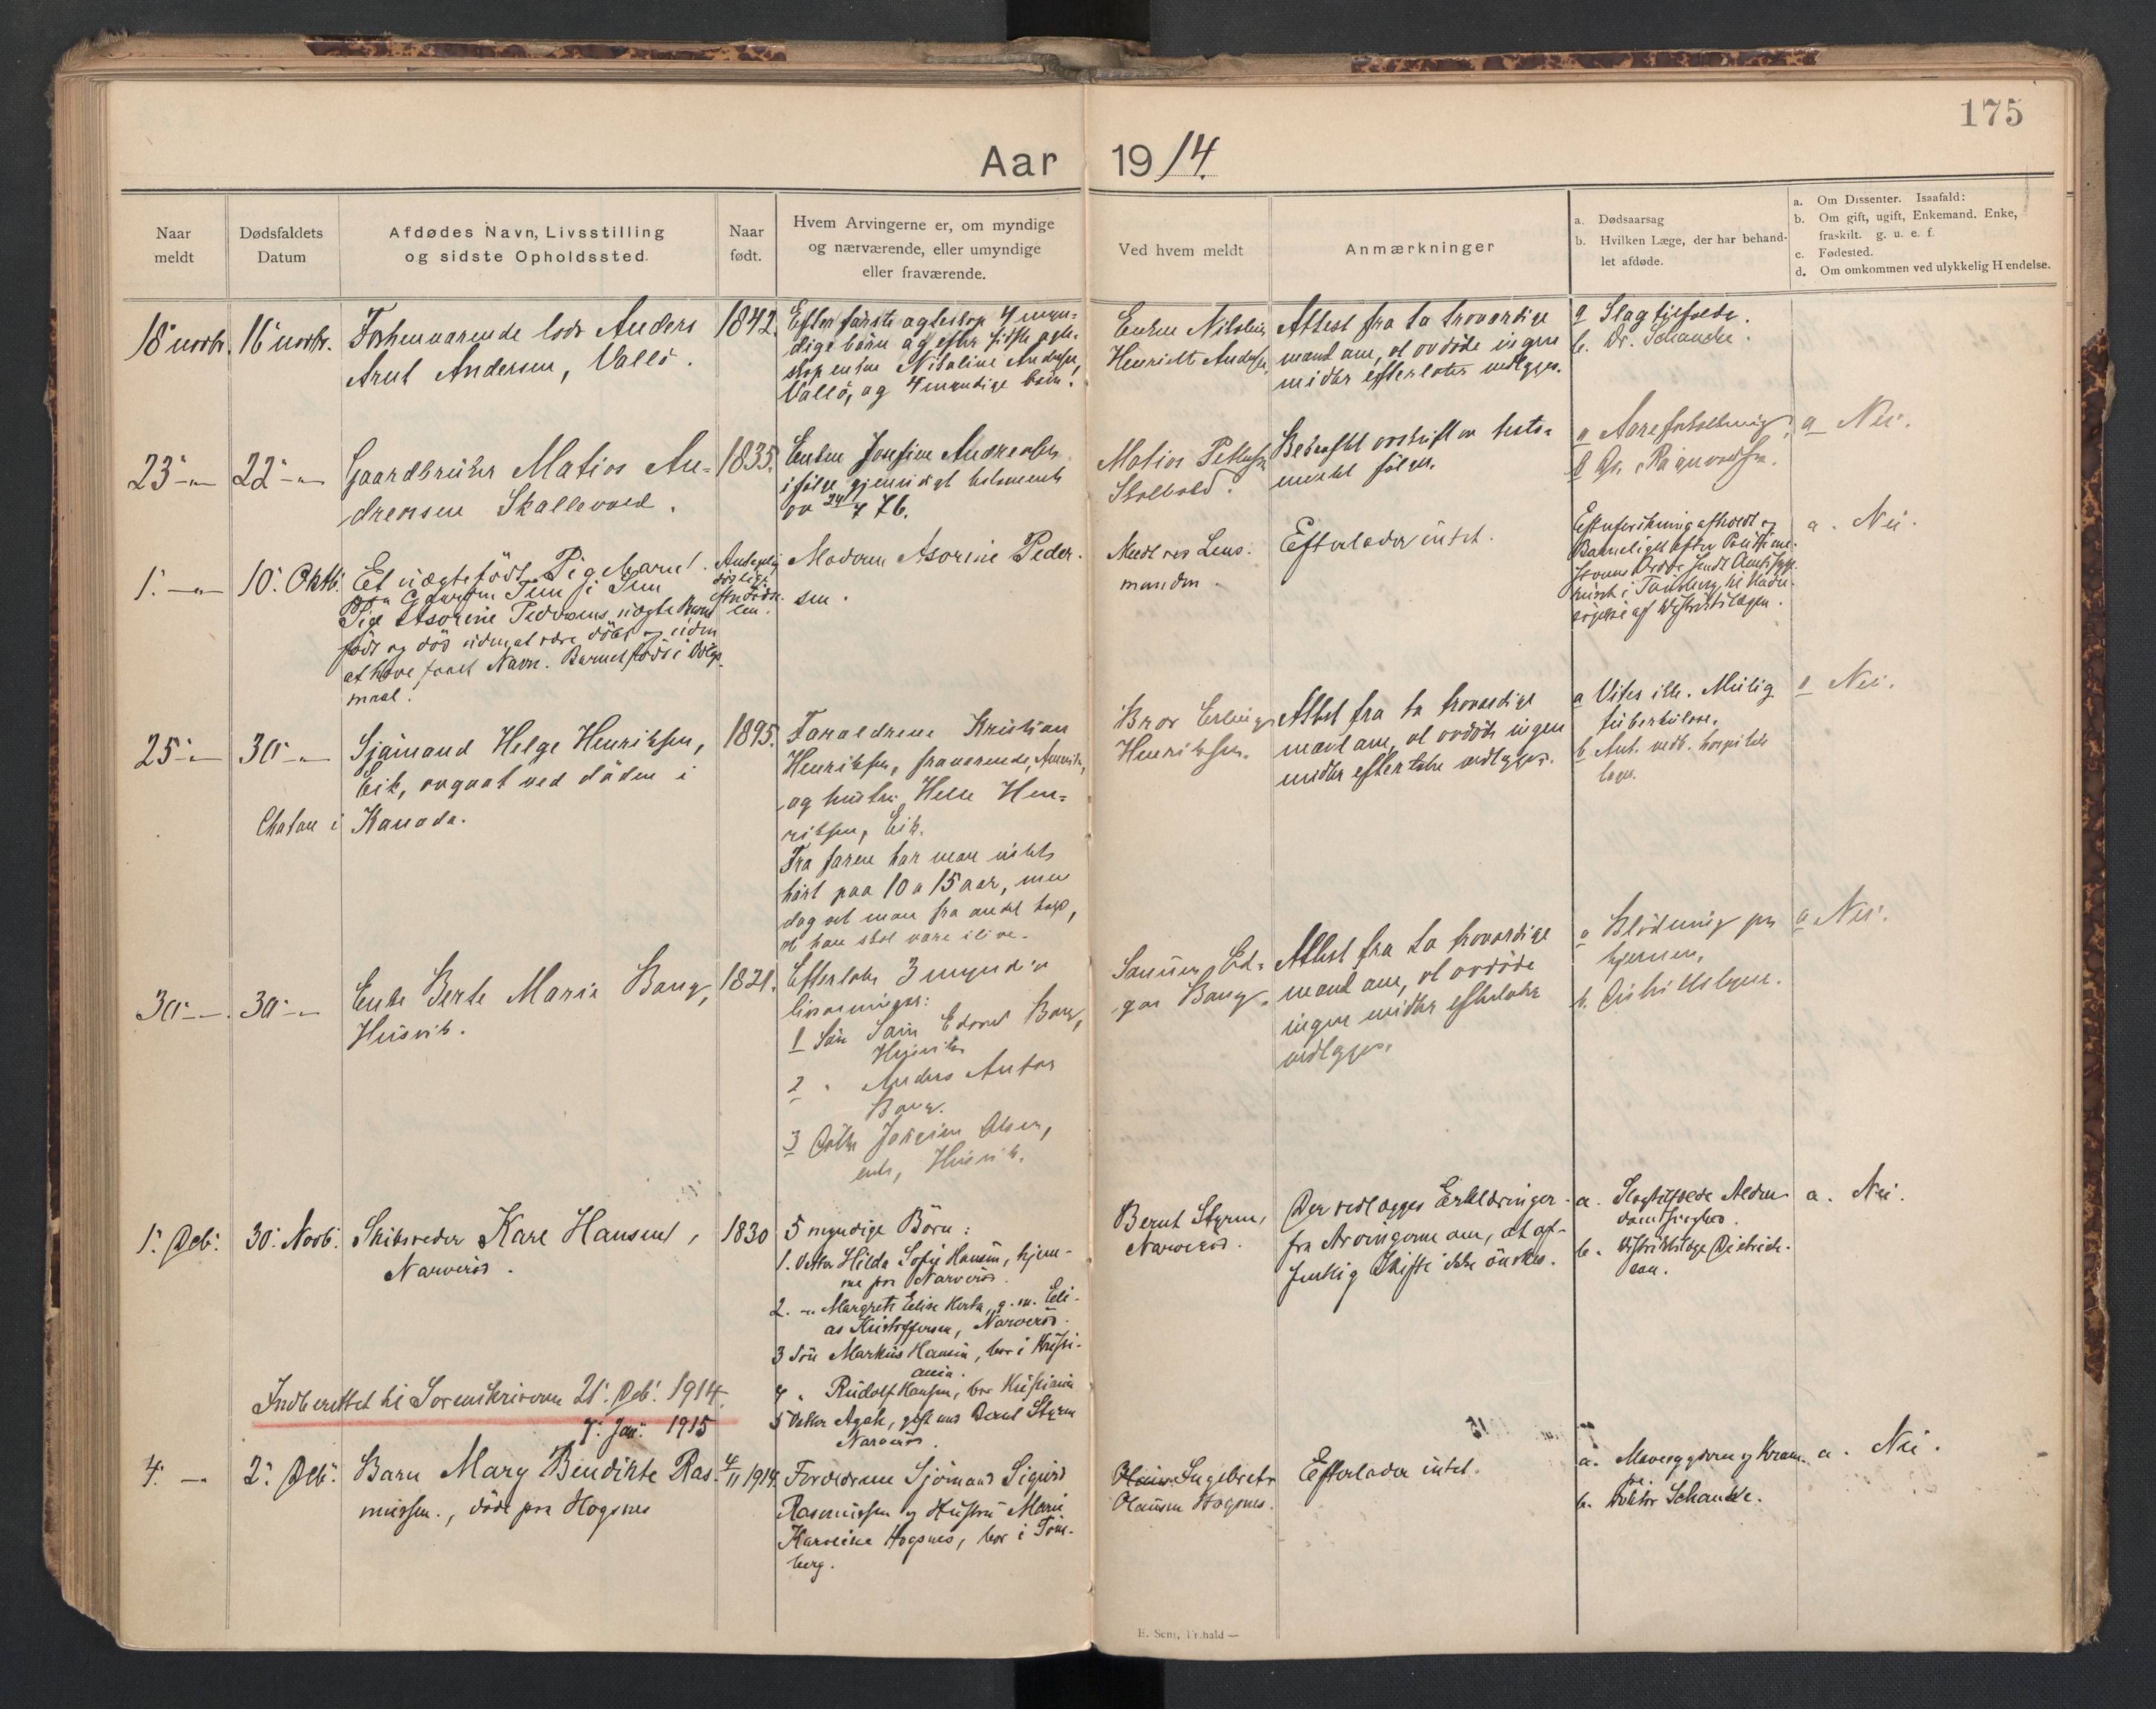 175
Aar 1914.
Naar meldt
Dødsfaldets Datum
Afdødes Navn, Livsstilling og sidste Opholdssted.
Naar født.
Hvem Arvingerne er, om myndige og nærværende, eller umyndige eller fraværende.
Ved hvem meldt
Anmærkninger
a. Dødsaarsag
b. Hvilken Læge, der har behandlet afdøde.
a. Om Dissenter. Isaafald:
b. Om gift, ugift, Enkemand, Enke, fraskilt. g. u. e. f.
c. Fødested.
d. Om omkommen ved ulykkelig Hændelse.
18' novbr. 16' novbr.
Forhenværende lods Anders
Arnt Andersen, Vallö.
1842.
Efter første ægteskap 4 myn-
dige börn og efter sidste ægte-
skap enken Nikoline Andersen,
Vallö, og 4 myndige börn.
Enken Nikoline
Henriette Andersen.
Attest fra to troværdige
mænd om, at avdöde ingen
midler efterlater vedlægges.
a Slagtilfælde.
b. Dr. Schancke.
23'-"- 22'-"-
Gaardbruker Matios An-
drensen Skallevold.
1835.
Enken Josefine Andrensen
ifølge gjensidigt testamente
av 24/7 76.
Matios Pettersen
Skalvold.
Bekræftet avskrift av testa-
mentet fölger.
a Aareforkalkning
b Dr. Ragnvald
a Nei.
1'. -"- 10'. Oktb.
Et uægtefödt Pigebarn.
Gaarden Tem i Sem
Pige Asorine Pedersens uægte Barn
född og död uden at være döbt og uden
at have faaet Navn. Barnet födt i Dölgs-
maal.
Madam Asorine Peder-
sen.
Meldt ved Lens-
manden.
Efterlader intet.
Efterforskning afholdt og
Barneliget efter Politime-
sterens Ordre sendt Amtssyge-
huset i Tönsberg til Under-
sögelse af Distriktslægen.
a. Nei.
25'-"- 30'-"-
Sjömand Helge Henriksen,
Eik, avgaat ved döden i
Chatau i Kanada.
1895.
Forældrene Kristian
Henriksen, fraværende, Amerika,
og hustru Helle Hen-
riksen, Eik.
Fra faren har man intet
hört paa 10 a 15 aar, men
dog vet man fra andet hold,
at han skal være ilive.
Bror Erling
Henriksen.
Attest fra to troværdige
mænd om, at avdöde ingen
midler efterlater vedlægges.
a Vites ikke. Mulig
tuberkulose.
b Ant. vedk. hospitals
læge.
a Nei.
30'-"-. 30'-"-
Enke Berte Marie Bang,
Husvik.
1821.
Efterlater 3 myndige
livsarvinger:
1 Sön Edvard Bang,
Husvik
2 " Anders Anton
Bang.
3 Datter Josefine Olsen,
enke, Husvik.
Sönnen Ed-
gar Bang.
Attest fra to troværdige
mænd om, at avdöde
ingen midler efterlater
vedlægges.
a Blödning paa
hjernen.
b. Distriktslægen.
a Nei.
1'. Deb'. 30'. Novb'.
Skibsreder Kare Hansen,
Narveröd.
1830
5 myndige Börn:
1. Datter Hilda Sofie Hansen, hjem-
me paa Narveröd.
2. -"- Margrete Elise Herta, g. m. Eli-
as Kristoffersen, Narveröd.
3 Sön Markus Hansen, bor i Kristi-
ania.
4 " Rudolf Hansen, bor Kristiania
5 Datter Agate, gift med Bernt Styrm
Narveröd.
Bernt Styrm,
Narveröd.
Der vedlægges Erklæringer
fra Arvingerne om, at of-
fentlig Skifte ikke önskes.
a. Slagtilfælde Alder-
domssvaghed.
b. Distriktslæge Diedrich-
son.
a. Nei.
Indberettet til Sorenskriveren 21'. Deb'. 1914.
7'. Jan'. 1915
4'. -"- 2'. Deb'.
Barn Mary Bendikte Ras-
mussen., döde paa Hogsnes
4/11 1914.
Forældrene Sjömand Sigurd
Rasmussen og Hustru Marie
Karoline Hogsnes, bor i Töns-
berg.
Ingebret
Olausen Hogsnes.
Efterlader intet.
a. Mavesygdom og Kram-
pe.
b. Doktor Schancke.
a. Nei.
E. Sem, Fr.hald —